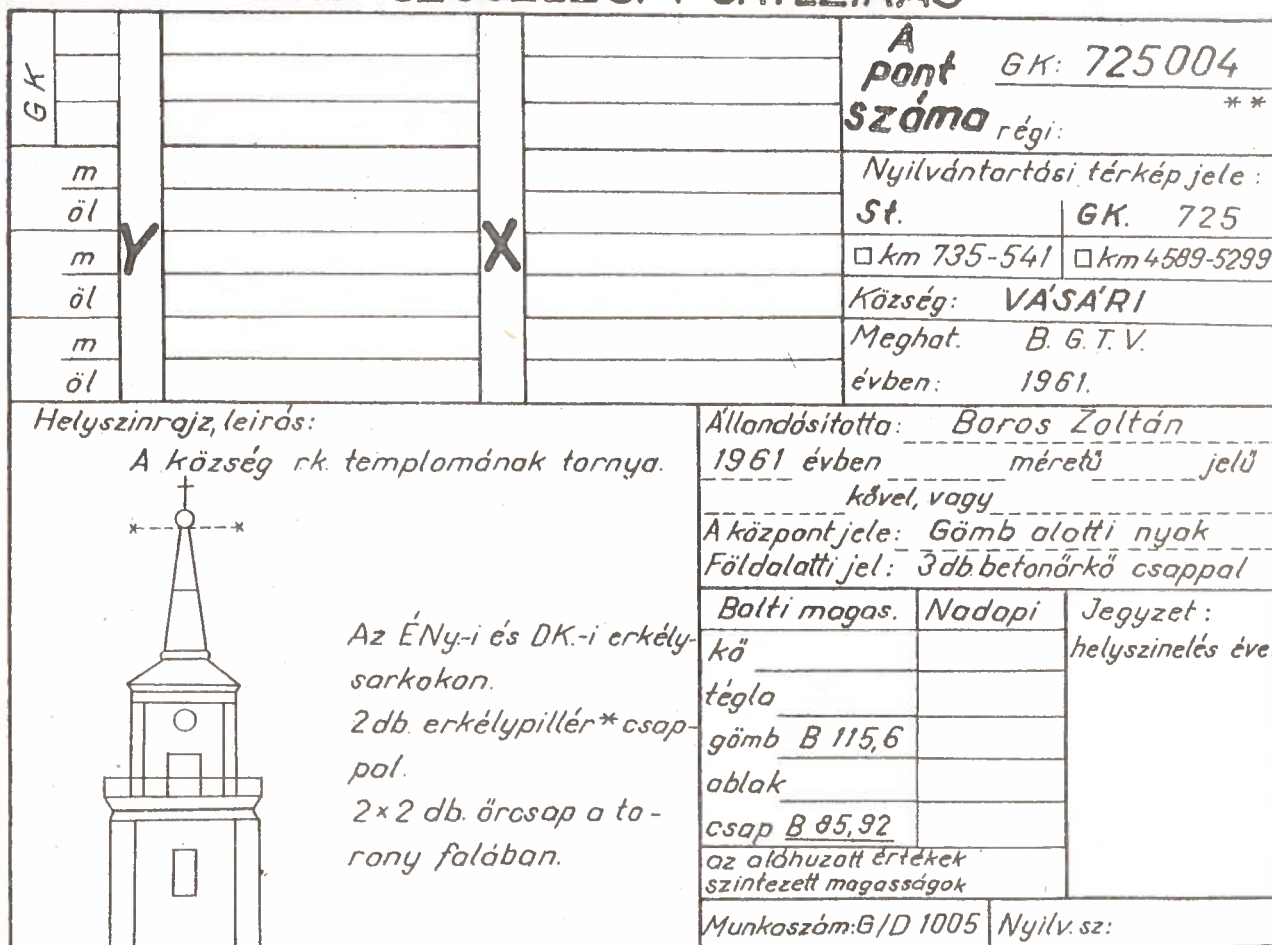 A
pont GK: 725004
száma régi: **
GK
m
öl
m
öl
m
öl
Y
X
Nyilvántartási térkép jele :
St. GK. 725
□km 735-541 □km 4589-5299
Község: VÁSÁRI
Meghat. B. G. T. V.
évben: 1961.
Helyszinrajz, leirás:
A község rk. templomának tornya.
Az ÉNy.-i és DK.-i erkély-
sarkokon.
2 db. erkélypillér* csap-
pal.
2×2 db. őrcsap a to-
rony falában.
Állandósitotta: Boros Zoltán
1961 évben méretű jelű
kővel, vagy
A központ jele: Gömb alatti nyak
Földalatti jel: 3 db. betonőrkő csappal
Balti magas. Nadapi Jegyzet:
kő helyszinelés éve
tégla
gömb B 115,6
ablak
csap B 85,92
az aláhuzott értékek
szintezett magasságok
Munkaszám: G/D 1005 Nyilv. sz: